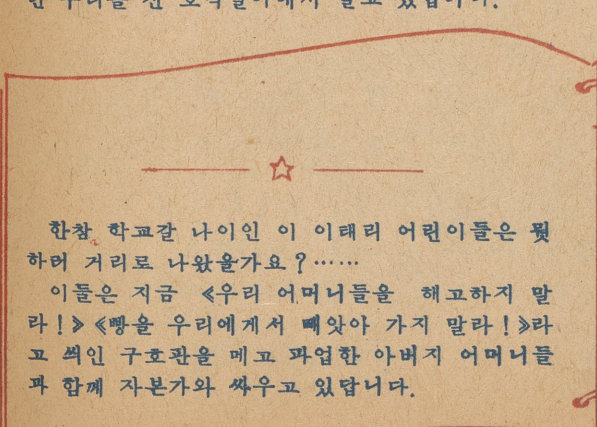 한참 학교갈 나이인 이 이태리 어린이들은 뭣
하러 거리로 나왔을가요?……
이들은 지금 《우리 어머니들을 해고하지 말
라!》《빵을 우리에게서 빼앗아 가지 말라!》라
고 씌인 구호판을 메고 파업한 아버지 어머니들
과 함께 자본가와 싸우고 있답니다.